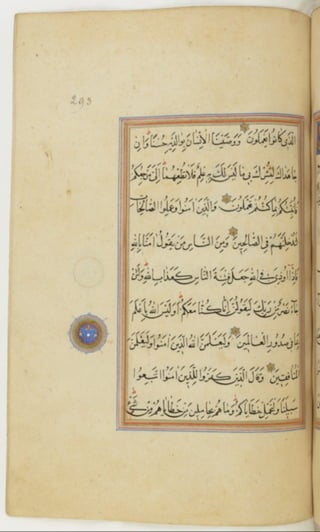 293
الذي كانوا يعملون ووصينا الإنسان بوالديه حسنا وإن
جاهداك لتشرك بي ما ليس لك به علم فلا تطعهما إلي مرجعكم
فأنبئكم بما كنتم تعملون والذين آمنوا وعملوا الصالحات
لندخلنهم في الصالحين ومن الناس من يقول آمنا بالله
فإذا أوذي في الله جعل فتنة الناس كعذاب الله ولئن
جاء نصر من ربك ليقولن إنا كنا معكم أوليس الله بأعلم
بما في صدور العالمين وليعلمن الله الذين آمنوا وليعلمن
المنافقين وقال الذين كفروا للذين آمنوا اتبعوا
سبيلنا ولنحمل خطاياكم وما هم بحاملين من خطاياهم من شيء